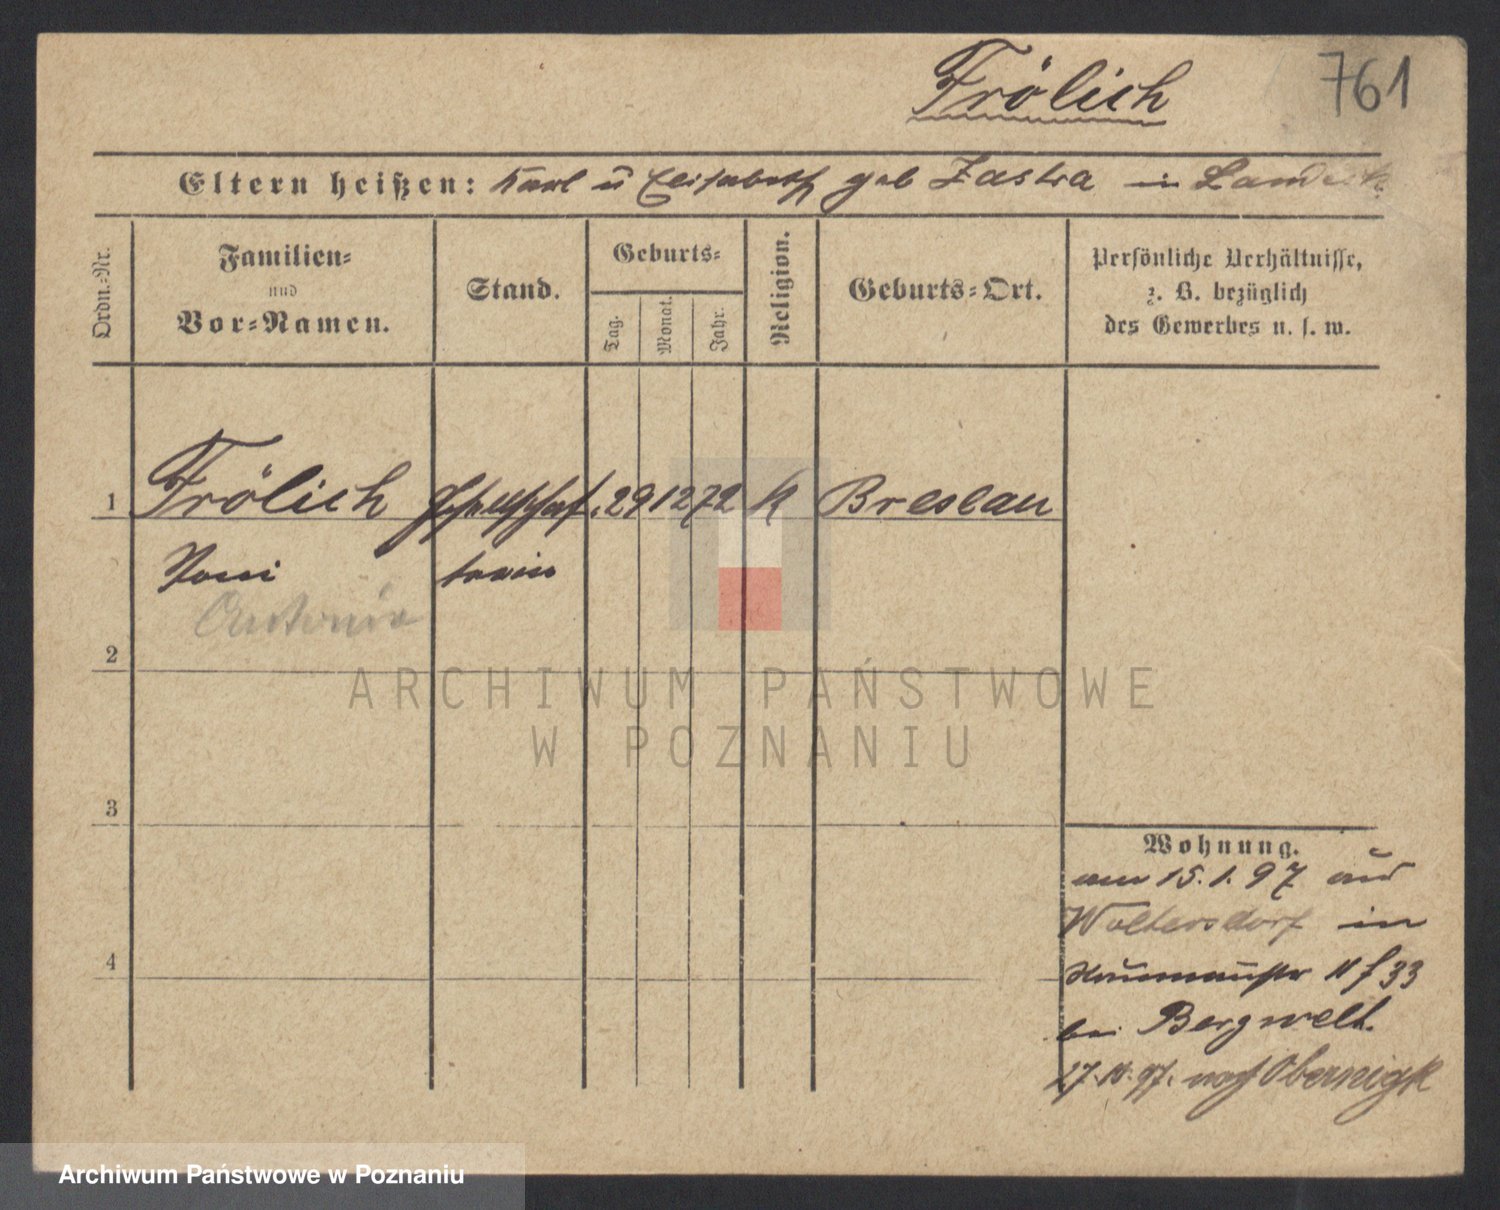 Frölich 761
Eltern heißen: Karl ū Elisabeth geb Zastra in Landeck
Ordn.-Nr.
Familien-
und
Vor-Namen.
Stand.
Geburts-
Tag.
Monat.
Jahr.
Religion.
Geburts-Ort.
Persönliche Verhältnisse,
z. B. bezüglich
des Gewerbes u. s. w.
1 Frölich Gesellschaf. 29 12 72 k Breslau
Toni terin
Antonie
2
ARCHIWUM PAŃSTWOWE
W POZNANIU
3
4
Wohnung.
am 15.1.97 aus
Woltersdorf in
Naumannstr 33
bei Bergwelt.
27. 97. nach Obernigk
Archiwum Państwowe w Poznaniu